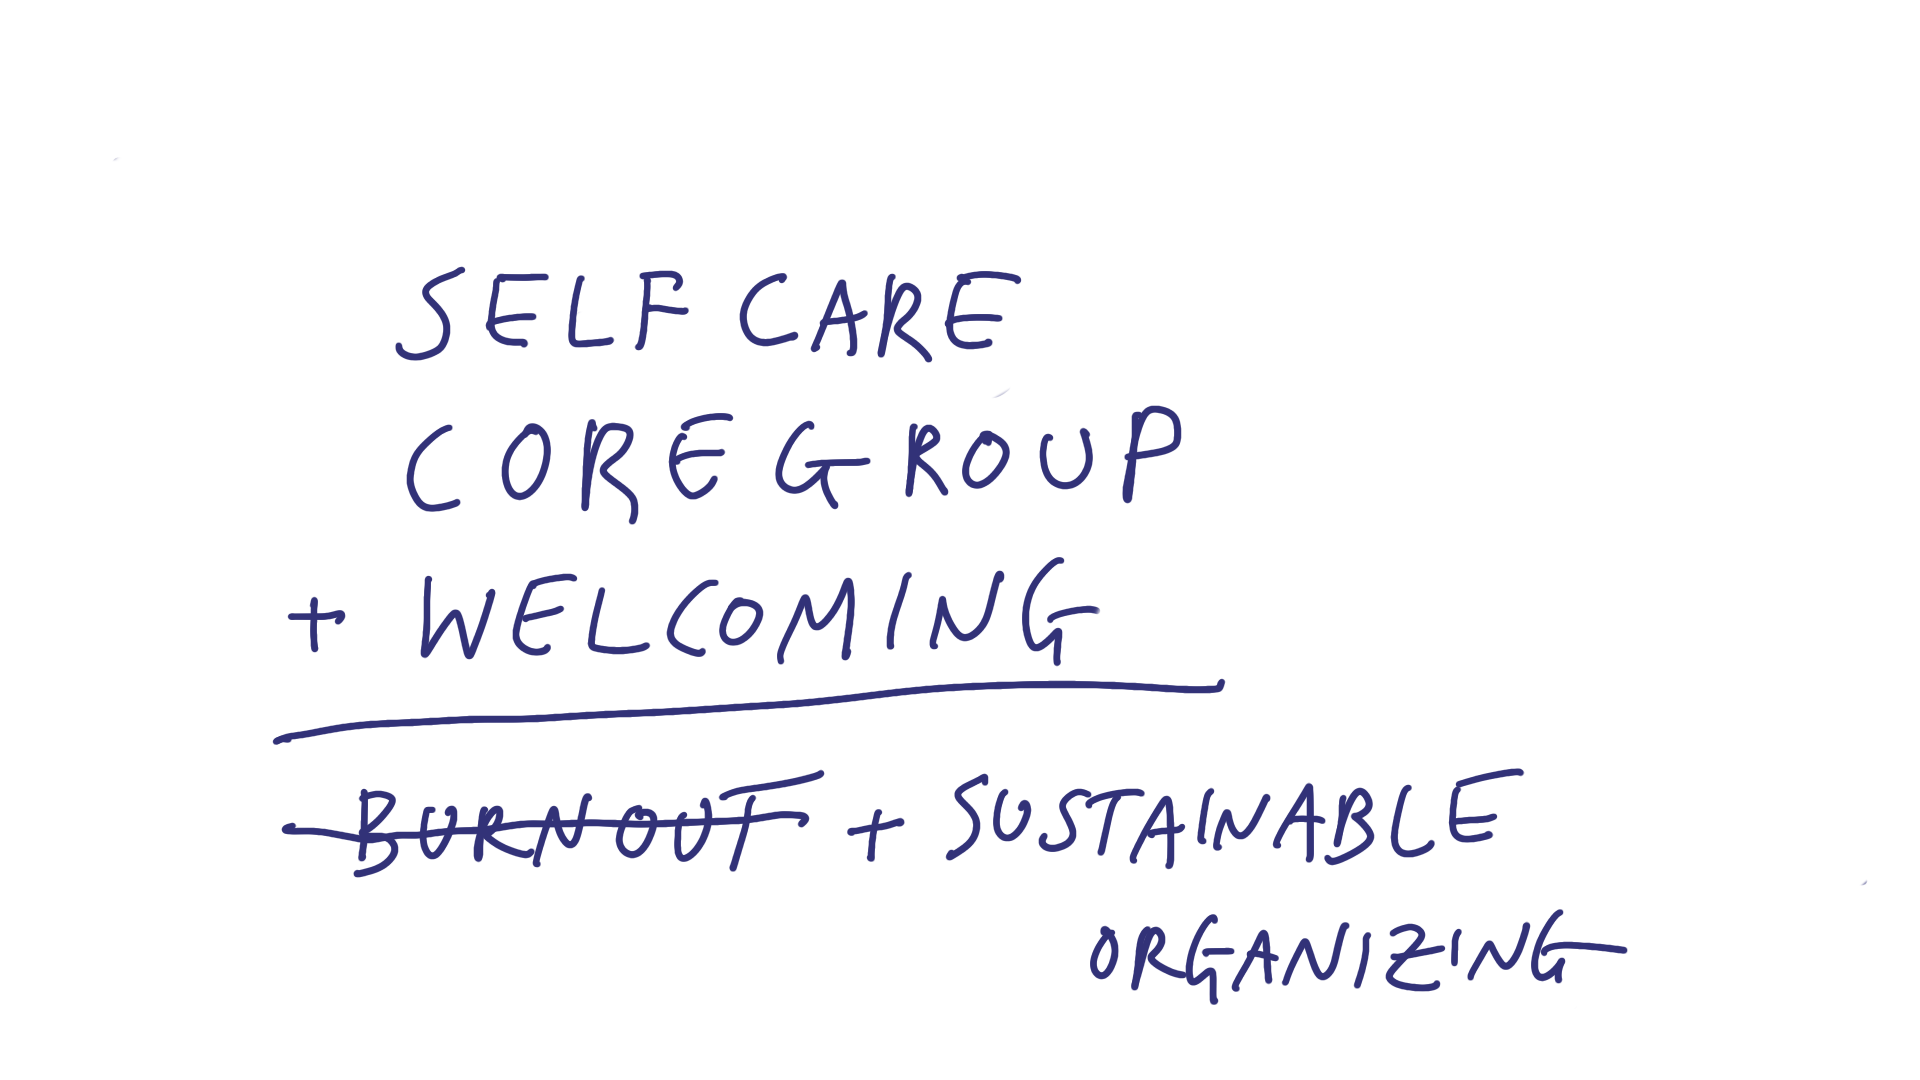 SELF CARE
CORE GROUP
+ WELCOMING
BURNOUT + SUSTAINABLE
ORGANIZING